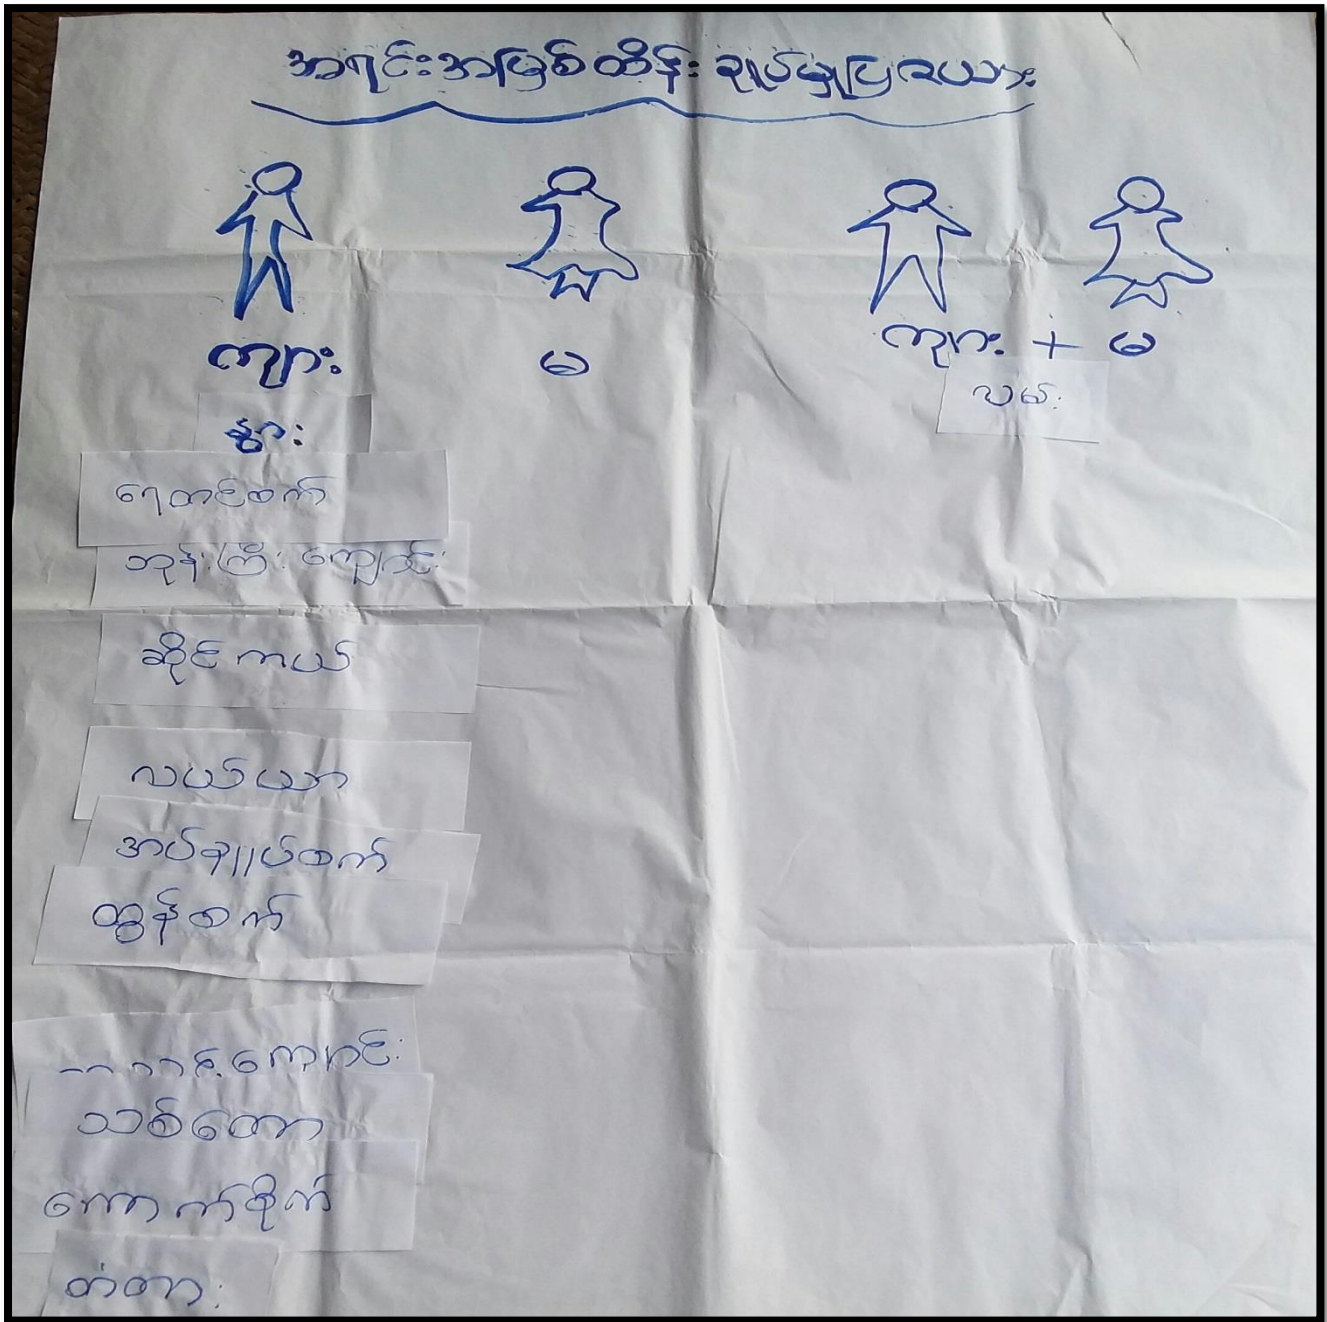 အရင်းအမြစ်ထိန်းချုပ်မှုပြဇယား
ကျား
မ
ကျား + မ
လမ်း
နွား
ရေတင်စက်
ဘုန်းကြီးကျောင်း
ဆိုင်ကယ်
လယ်ယာ
အပ်ချုပ်စက်
ထွန်စက်
ကျောင်း
သစ်တော
ကောက်စိုက်
တံတား